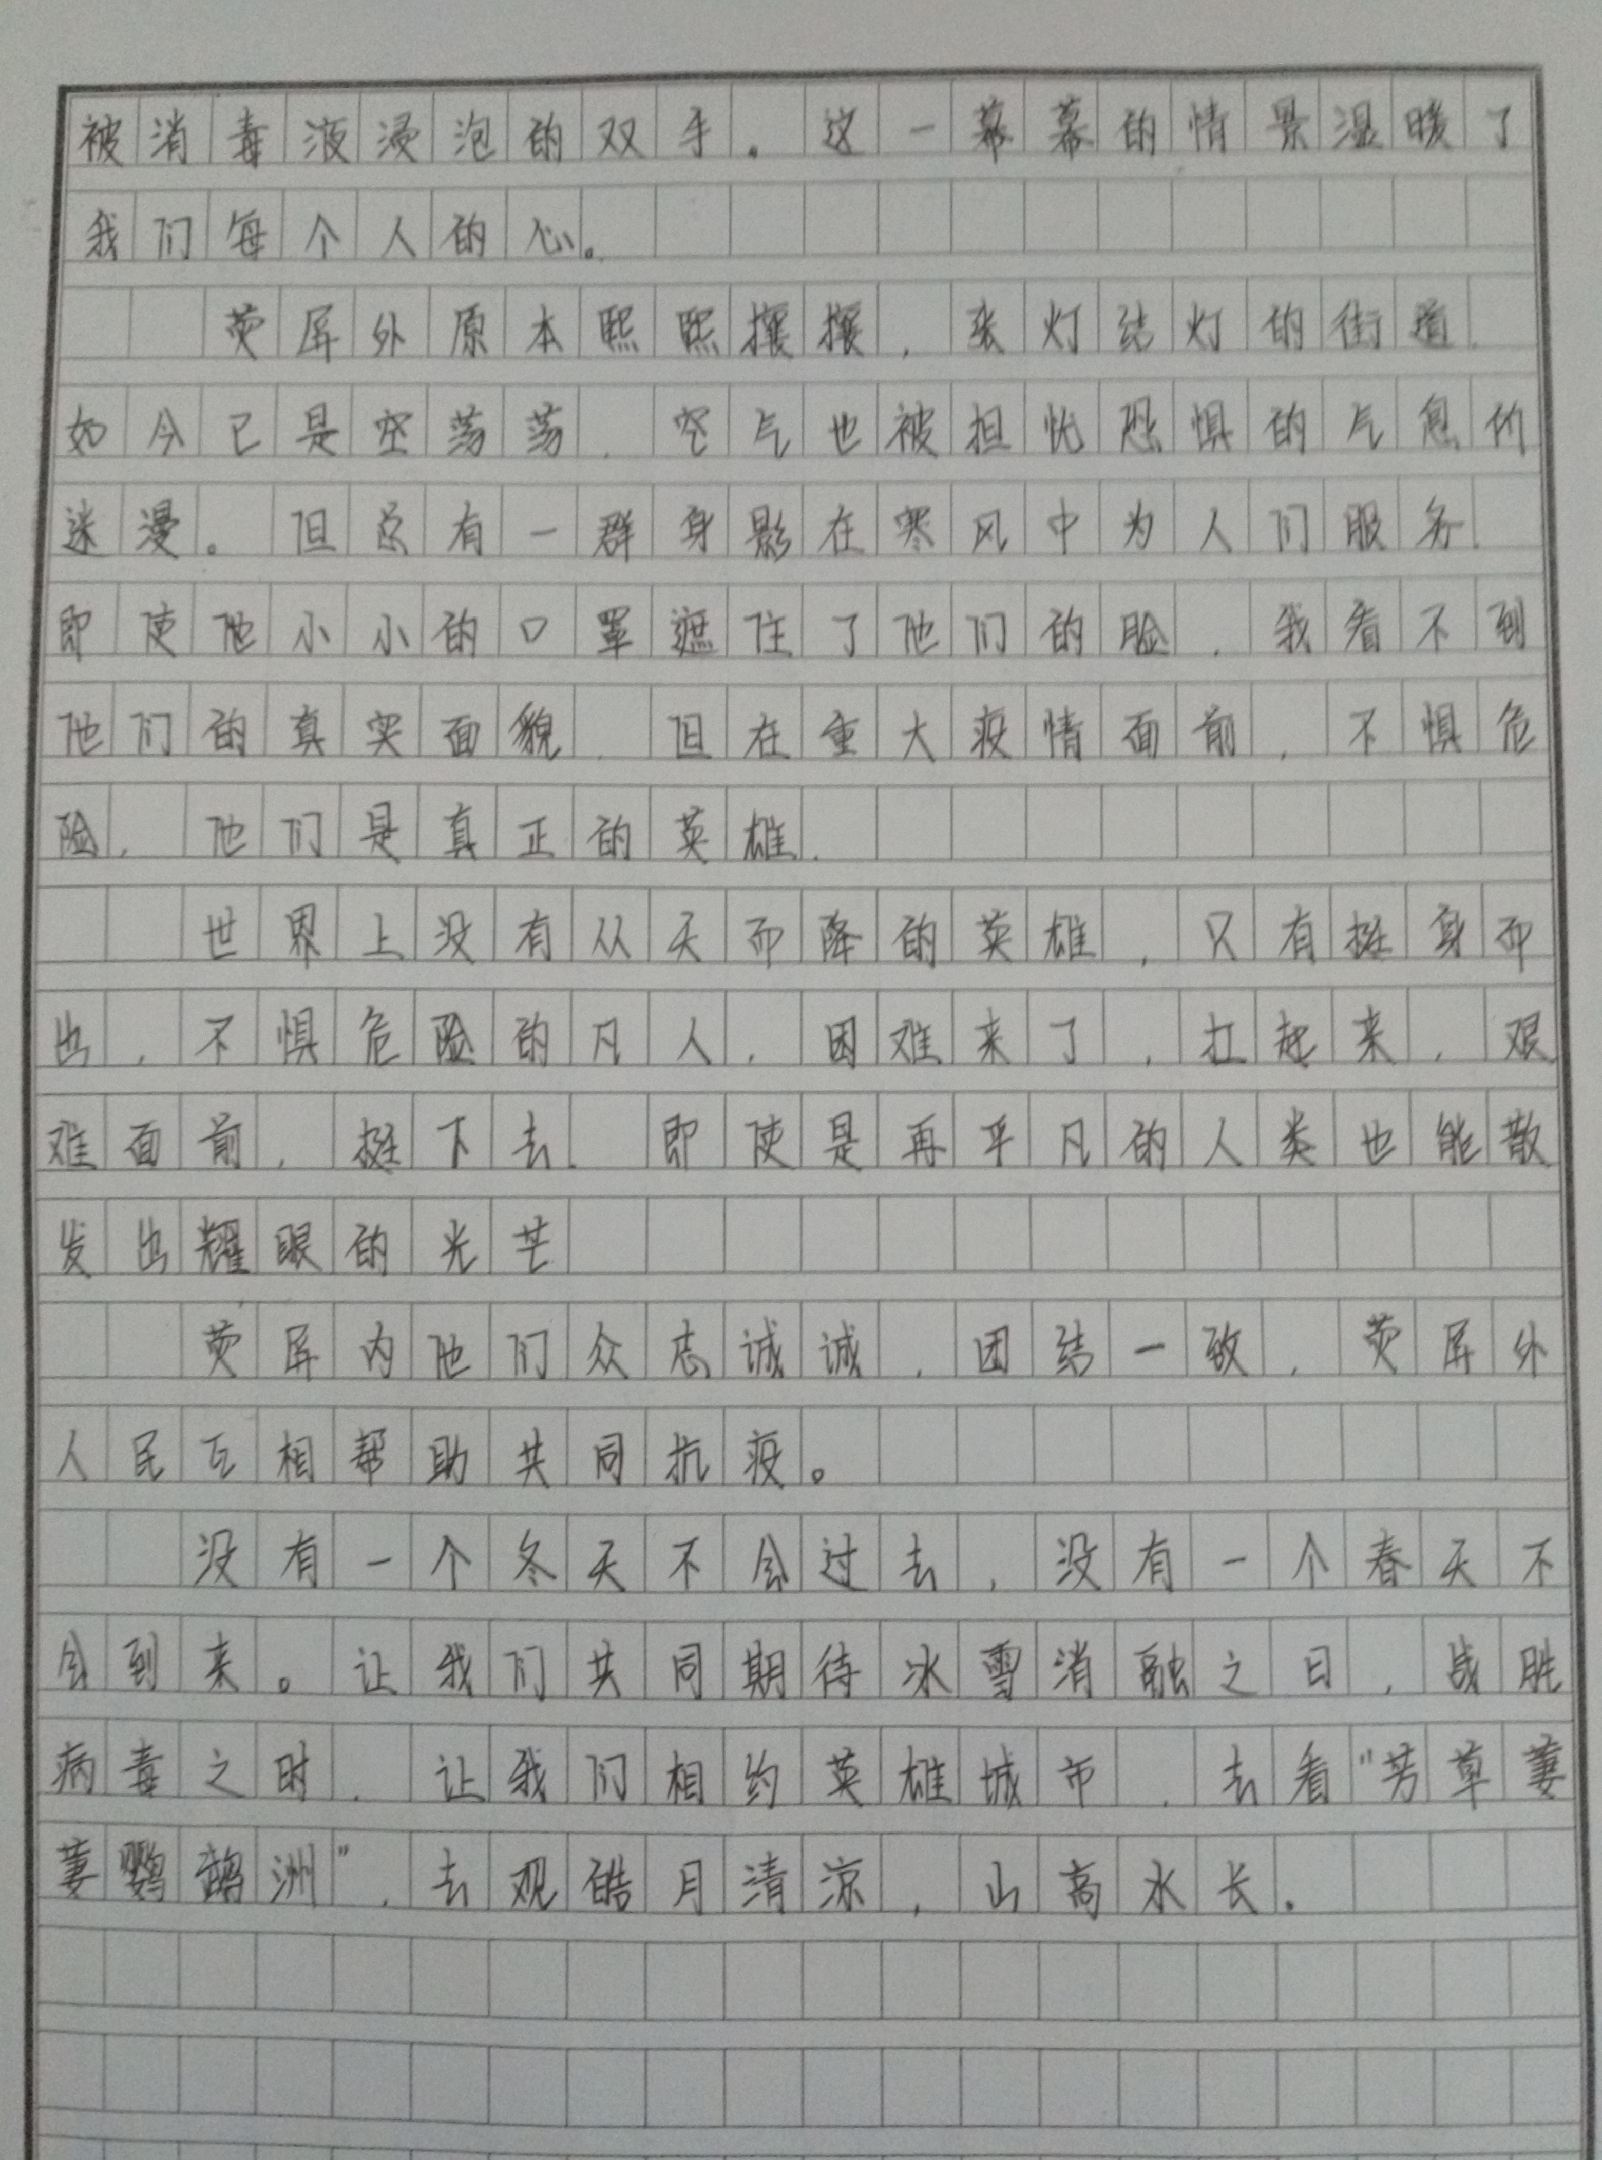 被消毒液浸泡的双手。这一幕幕的情景温暖了
我们每个人的心。
荧屏外原本熙熙攘攘，张灯结灯的街道，
如今已是空荡荡，空气也被担忧恐惧的气息所
迷漫。但总有一群身影在寒风中为人们服务，
即使他小小的口罩遮住了他们的脸，我看不到
他们的真实面貌，但在重大疫情面前，不惧危
险，他们是真正的英雄。
世界上没有从天而降的英雄，只有挺身而
出，不惧危险的凡人，困难来了，扛起来，艰
难面前，挺下去。即使是再平凡的人类也能散
发出耀眼的光芒
荧屏内他们众志诚诚，团结一致，荧屏外
人民互相帮助共同抗疫。
没有一个冬天不会过去，没有一个春天不
会到来。让我们共同期待冰雪消融之日，战胜
病毒之时，让我们相约英雄城市，去看“芳草萋
萋鹦鹉洲”，去观皓月清凉，山高水长。